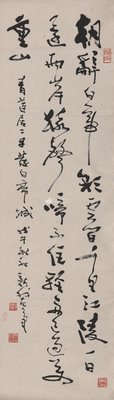 朝辭白帝彩雲間千里江陵一日
還兩岸猿聲啼不住輕舟已過萬
重山
青蓮居士早發白帝城 戊午秋